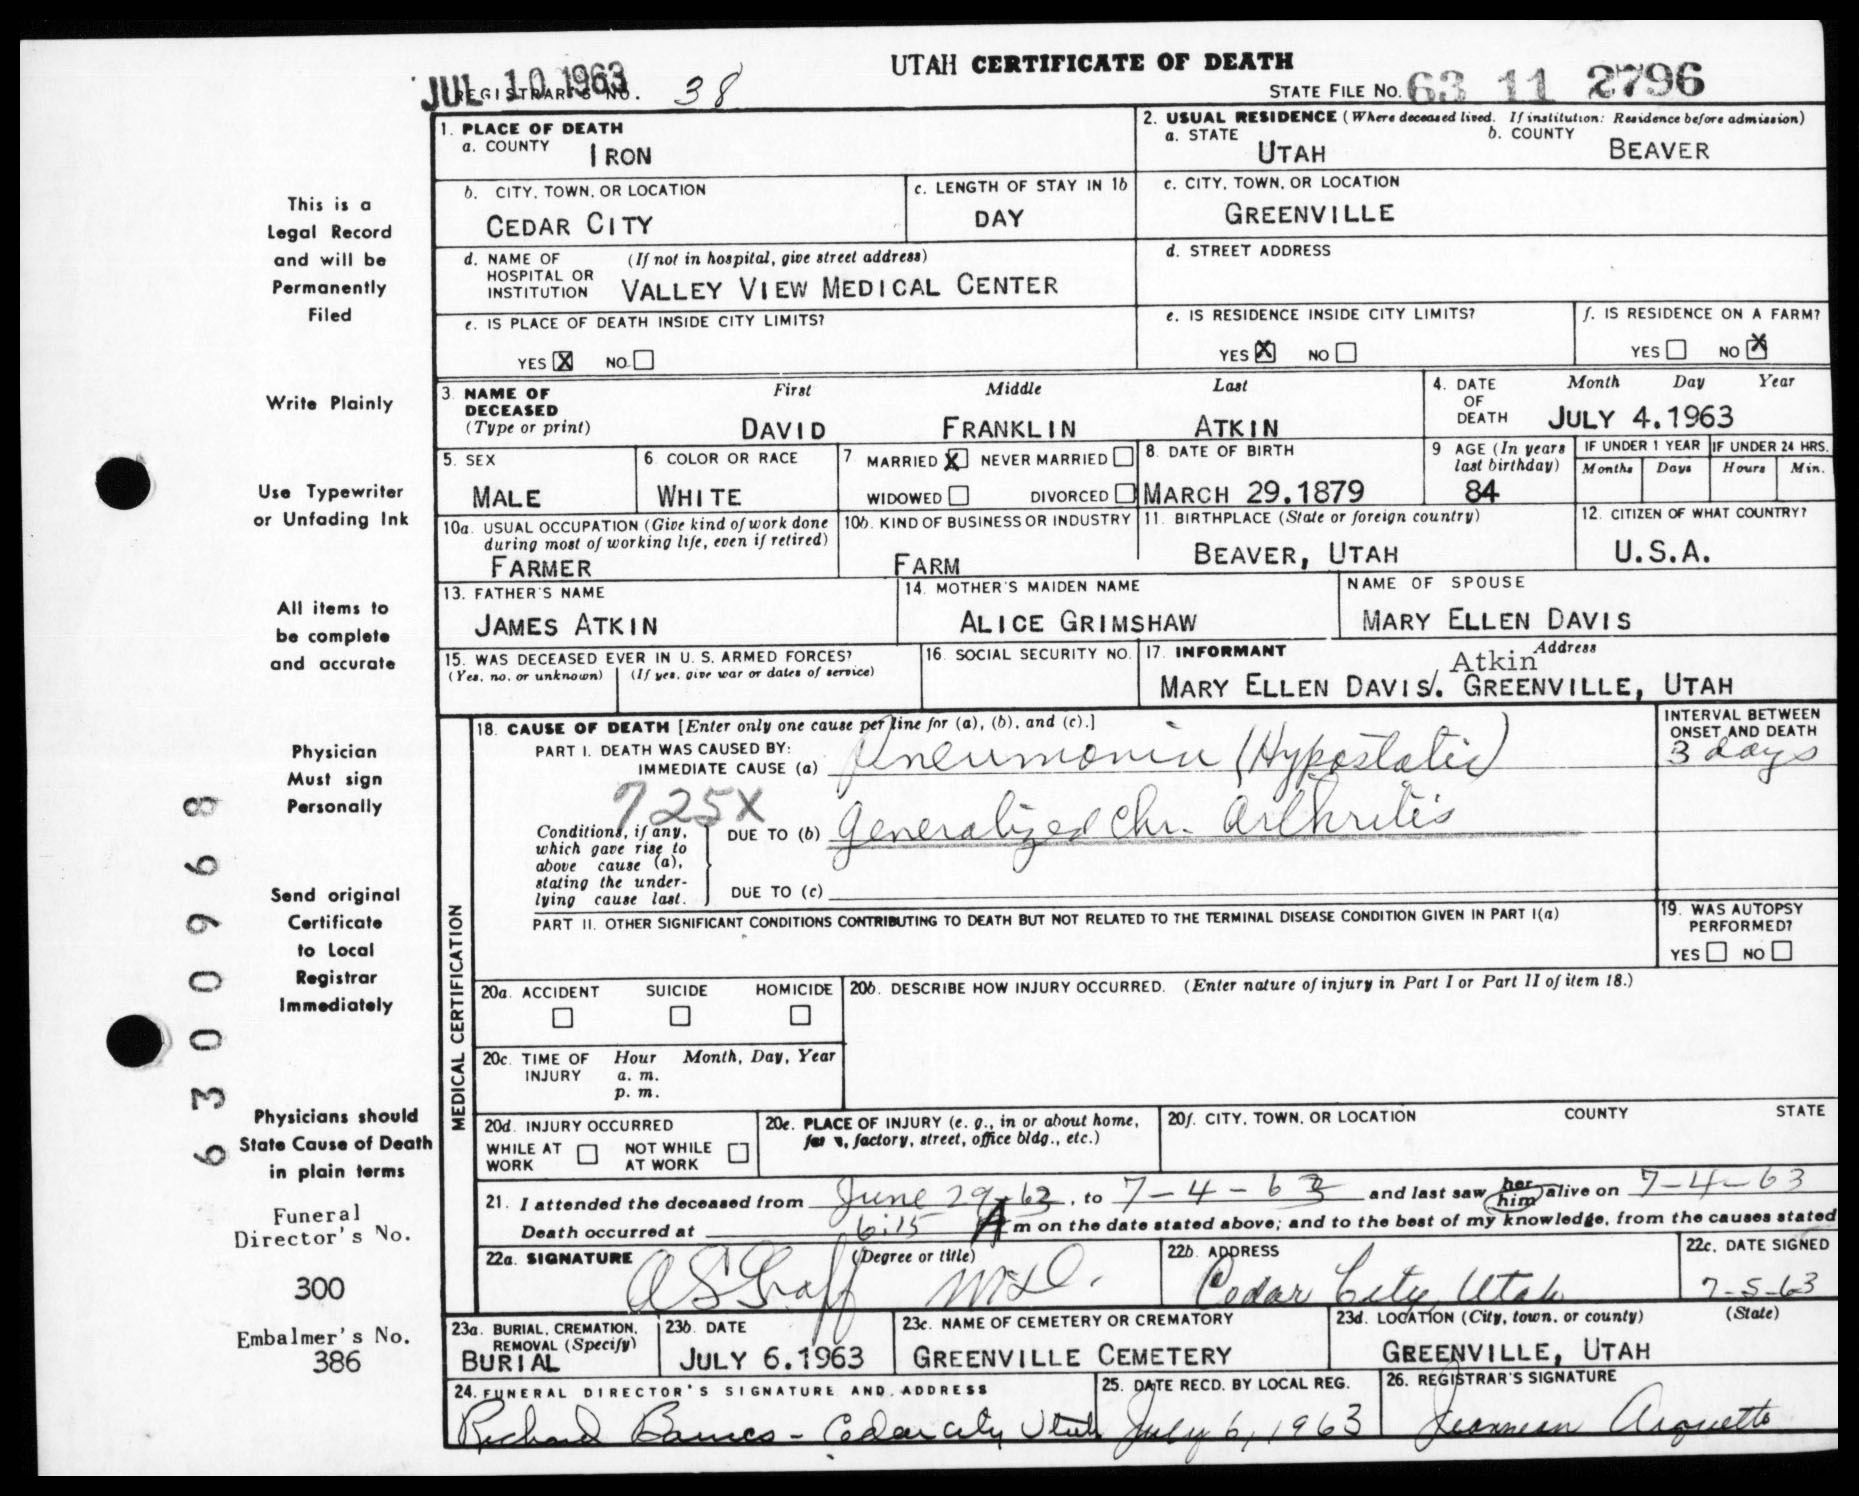 UTAH CERTIFICATE OF DEATH
JUL 10 1963
REGISTRAR'S NO. 38
STATE FILE NO. 63 11 2796
1. PLACE OF DEATH
a. COUNTY IRON
2. USUAL RESIDENCE (Where deceased lived. If institution: Residence before admission)
a. STATE UTAH b. COUNTY BEAVER
b. CITY, TOWN, OR LOCATION CEDAR CITY
c. LENGTH OF STAY IN 1b DAY
c. CITY, TOWN, OR LOCATION GREENVILLE
d. NAME OF HOSPITAL OR INSTITUTION (If not in hospital, give street address) VALLEY VIEW MEDICAL CENTER
d. STREET ADDRESS
e. IS PLACE OF DEATH INSIDE CITY LIMITS?
YES X NO
e. IS RESIDENCE INSIDE CITY LIMITS?
YES X NO
f. IS RESIDENCE ON A FARM?
YES NO X
3. NAME OF DECEASED (Type or print)
First Middle Last
DAVID FRANKLIN ATKIN
4. DATE OF DEATH Month Day Year
JULY 4.1963
5. SEX MALE
6. COLOR OR RACE WHITE
7 MARRIED X NEVER MARRIED
WIDOWED DIVORCED
8. DATE OF BIRTH MARCH 29.1879
9 AGE (In years last birthday) 84
IF UNDER 1 YEAR Months Days
IF UNDER 24 HRS. Hours Min.
10a. USUAL OCCUPATION (Give kind of work done during most of working life, even if retired) FARMER
10b. KIND OF BUSINESS OR INDUSTRY FARM
11. BIRTHPLACE (State or foreign country) BEAVER, UTAH
12. CITIZEN OF WHAT COUNTRY? U.S.A.
13. FATHER'S NAME JAMES ATKIN
14. MOTHER'S MAIDEN NAME ALICE GRIMSHAW
NAME OF SPOUSE MARY ELLEN DAVIS
15. WAS DECEASED EVER IN U. S. ARMED FORCES?
(Yes, no, or unknown) (If yes, give war or dates of service)
16. SOCIAL SECURITY NO.
17. INFORMANT Address
Atkin
MARY ELLEN DAVIS/. GREENVILLE, UTAH
MEDICAL CERTIFICATION
18. CAUSE OF DEATH [Enter only one cause per line for (a), (b), and (c).]
INTERVAL BETWEEN ONSET AND DEATH
PART I. DEATH WAS CAUSED BY:
IMMEDIATE CAUSE (a) Pneumonia (Hypostatic) 3 days
725X
Conditions, if any, which gave rise to above cause (a), stating the underlying cause last.
DUE TO (b) Generalized Chr. Arthritis
DUE TO (c)
PART II. OTHER SIGNIFICANT CONDITIONS CONTRIBUTING TO DEATH BUT NOT RELATED TO THE TERMINAL DISEASE CONDITION GIVEN IN PART I(a)
19. WAS AUTOPSY PERFORMED?
YES NO
20a. ACCIDENT SUICIDE HOMICIDE
20b. DESCRIBE HOW INJURY OCCURRED. (Enter nature of injury in Part I or Part II of item 18.)
20c. TIME OF INJURY Hour Month, Day, Year
a. m.
p. m.
20d. INJURY OCCURRED
WHILE AT WORK NOT WHILE AT WORK
20e. PLACE OF INJURY (e. g., in or about home, farm, factory, street, office bldg., etc.)
20f. CITY, TOWN, OR LOCATION COUNTY STATE
21. I attended the deceased from June 29-63, to 7-4-63 and last saw her him alive on 7-4-63
Death occurred at 6:15 A m on the date stated above; and to the best of my knowledge, from the causes stated
22a. SIGNATURE (Degree or title) A S Graff M.D.
22b. ADDRESS Cedar City Utah
22c. DATE SIGNED 7-5-63
23a. BURIAL, CREMATION, REMOVAL (Specify) BURIAL
23b. DATE JULY 6.1963
23c. NAME OF CEMETERY OR CREMATORY GREENVILLE CEMETERY
23d. LOCATION (City, town, or county) (State) GREENVILLE, UTAH
24. FUNERAL DIRECTOR'S SIGNATURE AND ADDRESS
Richard Barnes - Cedar City Utah
25. DATE RECD. BY LOCAL REG. July 6, 1963
26. REGISTRAR'S SIGNATURE
Arquette
This is a
Legal Record
and will be
Permanently
Filed
Write Plainly
Use Typewriter
or Unfading Ink
All items to
be complete
and accurate
Physician
Must sign
Personally
Send original
Certificate
to Local
Registrar
Immediately
Physicians should
State Cause of Death
in plain terms
Funeral
Director's No.
300
Embalmer's No.
386
6300968